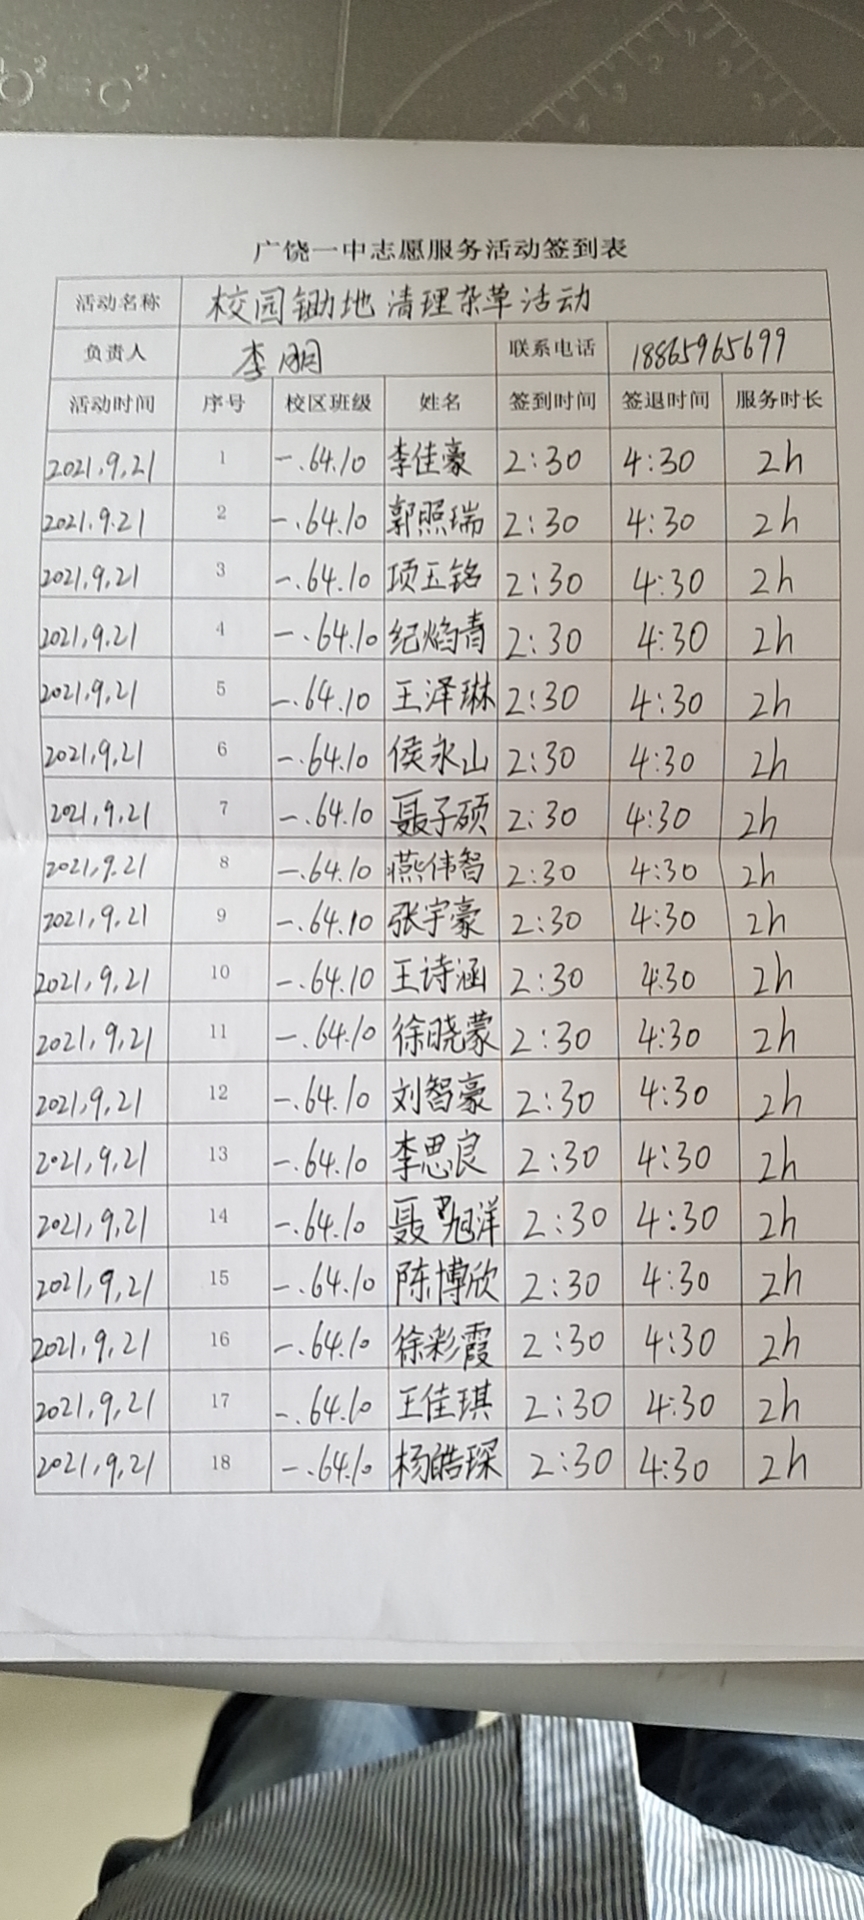 b² = c²
广饶一中志愿服务活动签到表
活动名称 校园锄地清理杂草活动
负责人 李明 联系电话 18865965699
活动时间 序号 校区班级 姓名 签到时间 签退时间 服务时长
2021.9.21 1 一.64.10 李佳豪 2:30 4:30 2h
2021.9.21 2 一.64.10 郭照瑞 2:30 4:30 2h
2021.9.21 3 一.64.10 项五铭 2:30 4:30 2h
2021.9.21 4 一.64.10 纪焰青 2:30 4:30 2h
2021.9.21 5 一.64.10 王泽琳 2:30 4:30 2h
2021.9.21 6 一.64.10 侯永山 2:30 4:30 2h
2021.9.21 7 一.64.10 聂子硕 2:30 4:30 2h
2021.9.21 8 一.64.10 燕伟智 2:30 4:30 2h
2021.9.21 9 一.64.10 张宇豪 2:30 4:30 2h
2021.9.21 10 一.64.10 王诗涵 2:30 4:30 2h
2021.9.21 11 一.64.10 徐晓蒙 2:30 4:30 2h
2021.9.21 12 一.64.10 刘智豪 2:30 4:30 2h
2021.9.21 13 一.64.10 李思良 2:30 4:30 2h
2021.9.21 14 一.64.10 聂旭洋 2:30 4:30 2h
2021.9.21 15 一.64.10 陈博欣 2:30 4:30 2h
2021.9.21 16 一.64.10 徐彩霞 2:30 4:30 2h
2021.9.21 17 一.64.10 王佳琪 2:30 4:30 2h
2021.9.21 18 一.64.10 杨皓琛 2:30 4:30 2h